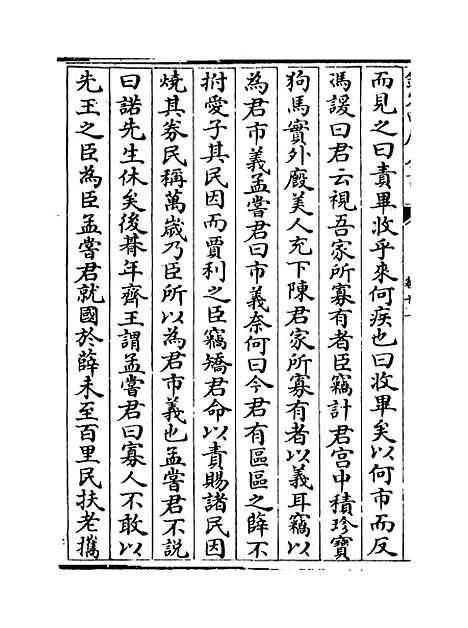 而見之曰責畢收乎來何疾也曰收畢矣以何市而反
馮諼曰君云視吾家所寡有者臣竊計君宮中積珍寶
狗馬實外廐美人充下陳君家所寡有者以義耳竊以
為君市義孟嘗君曰市義奈何曰今君有區區之薛不
拊愛子其民因而賈利之臣竊矯君命以責賜諸民因
燒其券民稱萬歲乃臣所以為君市義也孟嘗君不説
曰諾先生休矣後朞年齊王謂孟嘗君曰寡人不敢以
先王之臣為臣孟嘗君就國於薛未至百里民扶老攜